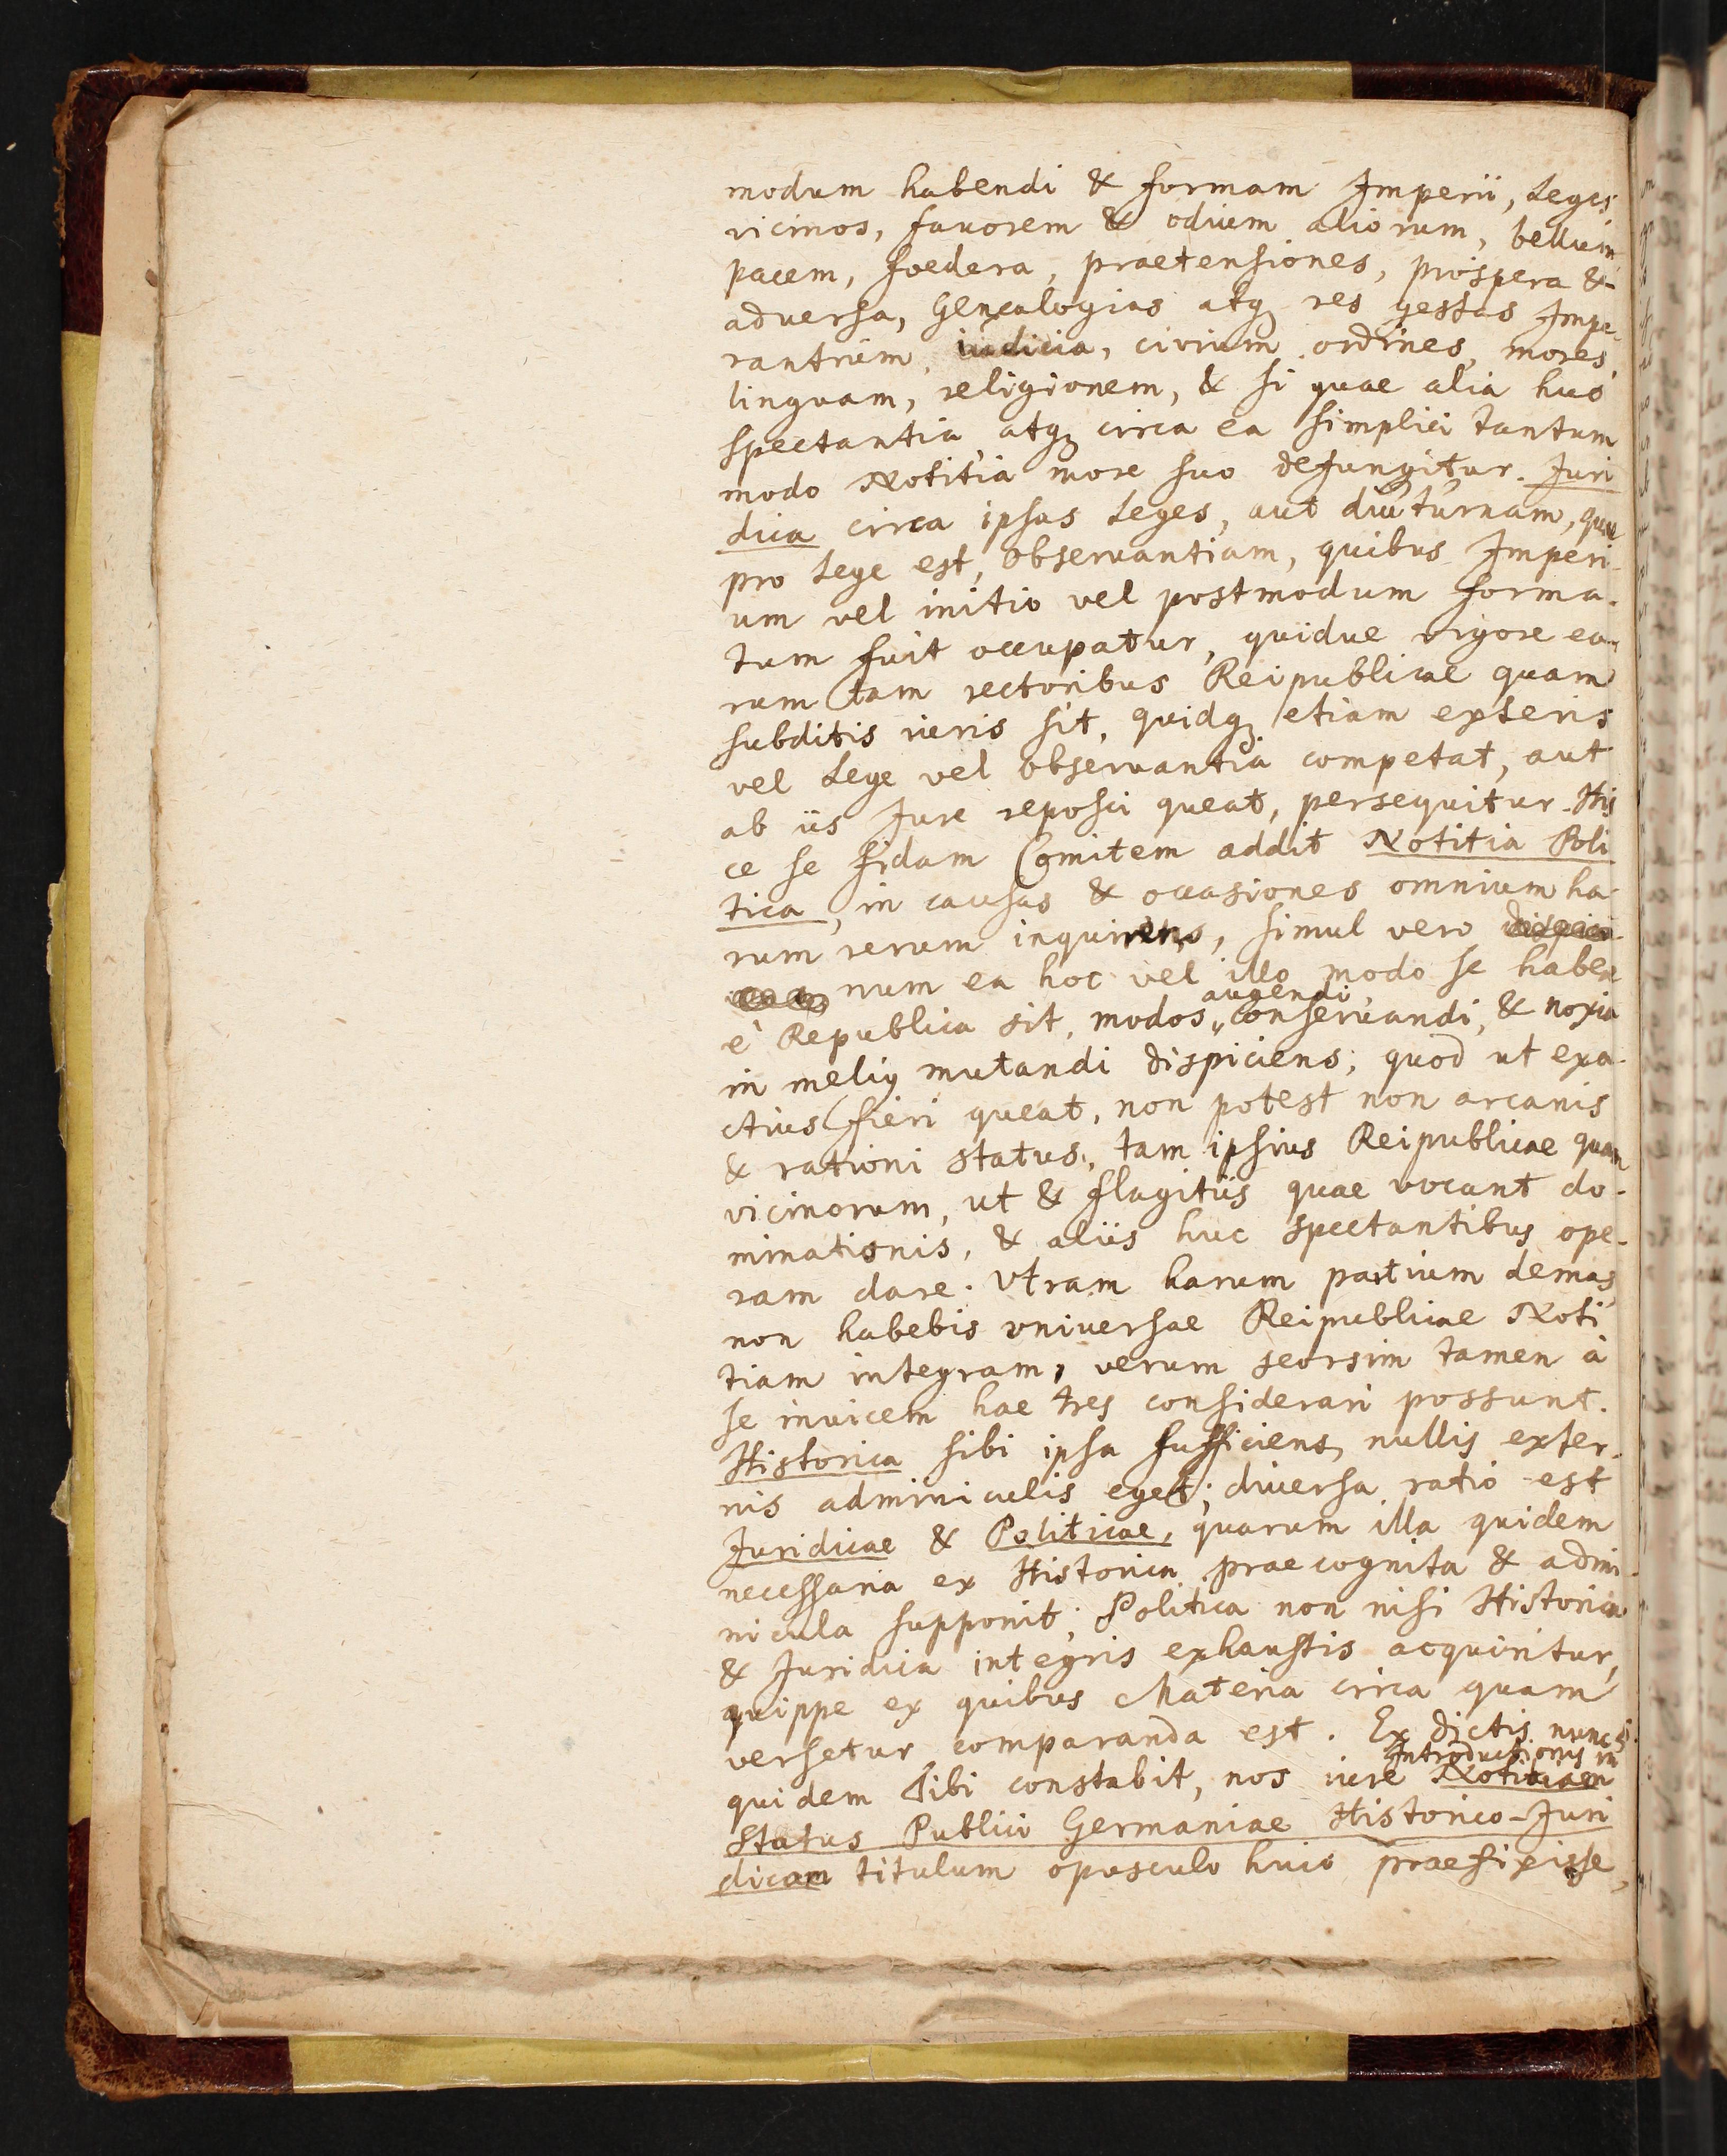 modum habendi & formam Imperii, Leges,
vicinos, fauorem & odium aliorum, bellum
pacem, foedera, praetensiones, prospera &
adversa, Genealogias atq res gestas Impe-
rantium, iudicia, civium ordines, mores,
linguam, religionem, & si quae alia huc
spectantia, atq circa ea simplici tantum
modo Notitia more suo defungitur. Juri
dica circa ipsas Leges, aut diuturnam, quae
pro Lege est, observantiam, quibus Imperi-
um vel initio vel postmodum forma-
tum fuit occupatur, quidue vigore ea-
rum tam rectoribus Reipublicae quam
subditis iuris sit, quidq etiam exteris
vel Lege vel observantia competat, aut
ab iis Jure reposci queat, persequitur. His
ce se fidam Comitem addit Notitia Poli
tica, in causas & occasiones omnium ha
rum rerum inquirens, simul vero
num ea hoc vel illo modo se habere
augendi,
è Republica sit, modos conseruandi, & noxia
in meliq mutandi dispiciens; quod ut exa-
ctius fieri queat, non potest non arcanis
& rationi status, tam ipsius Reipublicae quam
vicinorum, ut & flagitiis quae vocant do-
minationis, & aliis huc spectantibus ope-
ram dare. Vtram harum partium demas,
non habebis vniversae Reipublicae Noti
tiam integram, verum seorsim tamen à
se invicem hae tres considerari possunt.
Historica sibi ipsa sufficiens, nullis exter-
nis adminiculis eget; diversa ratio est
Juridicae & Politicae, quarum illa quidem
necessaria ex Historica praecognita & admi-
nicula supponit; Politica non nisi Historica
& Juridica integris exhaustis acquiritur,
quippe ex quibus Materia circa quam
versetur comparanda est. Ex dictis nunc
Introductionis in
quidem Tibi constabit, nos iure Notitiam
Status Publici Germaniae Historico-Juri
dicam titulum opusculo huic praefixisse,